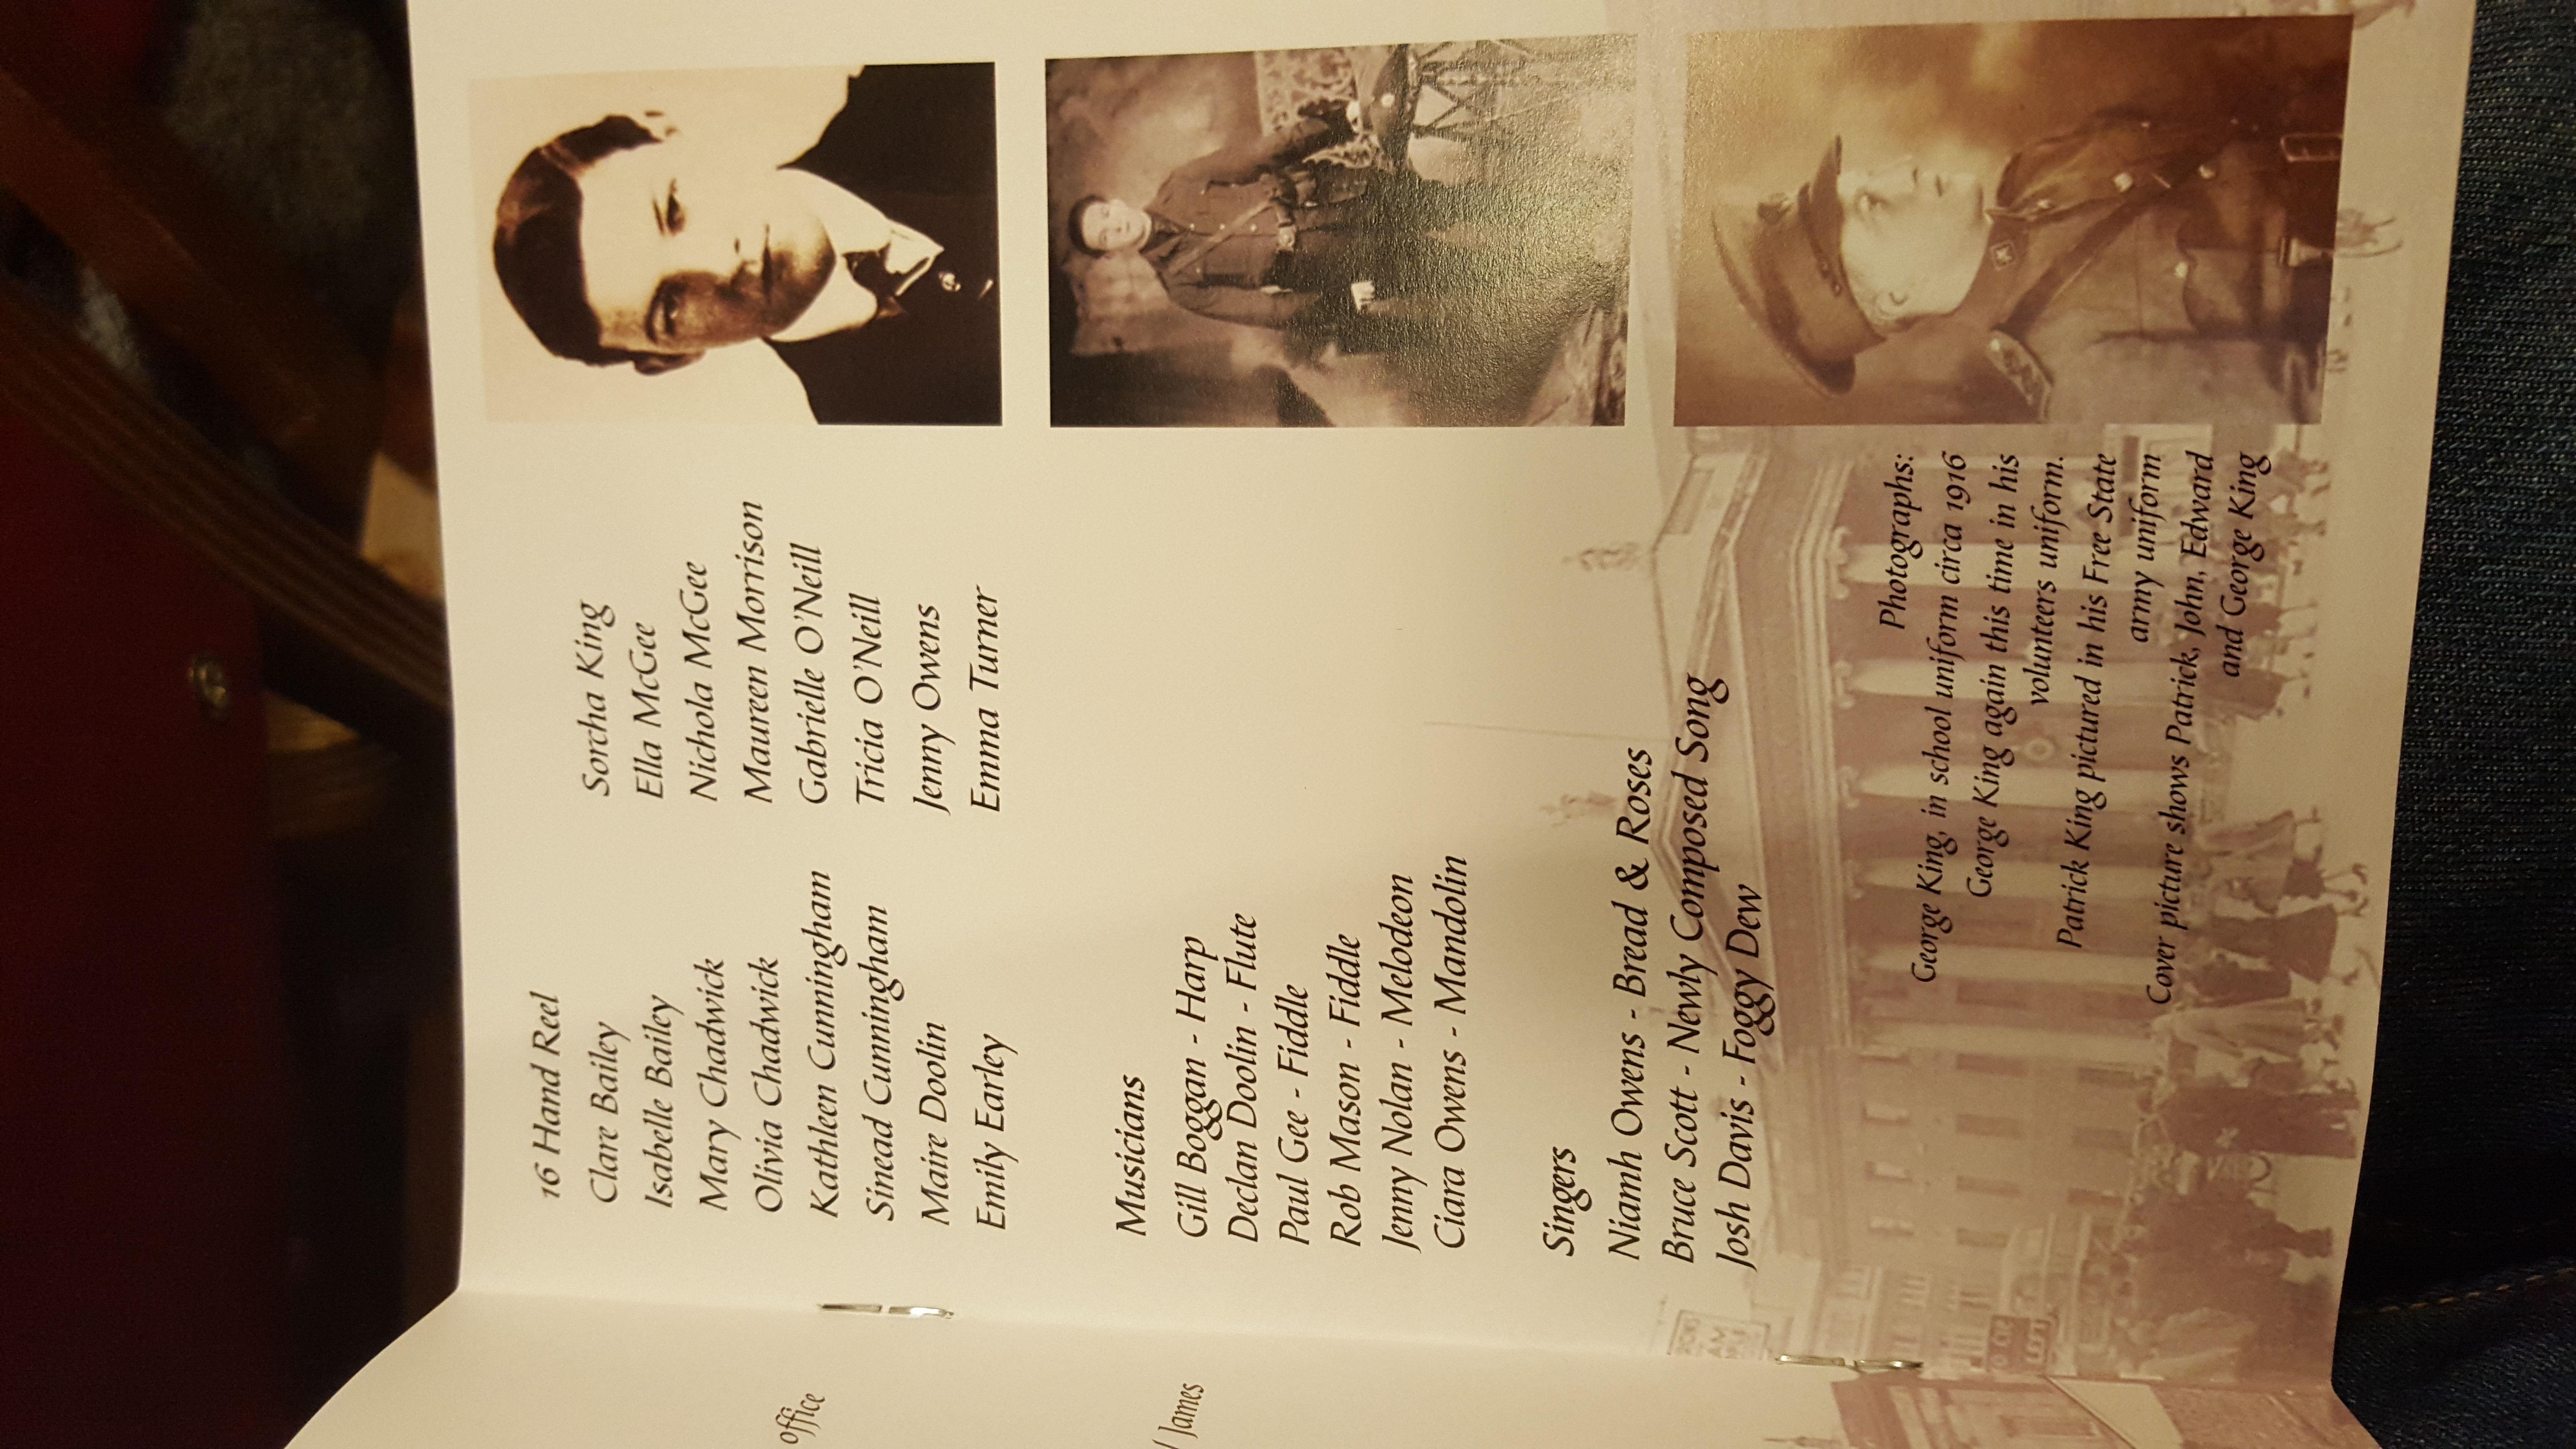 office
James
16 Hand Reel
Clare Bailey
Isabelle Bailey
Mary Chadwick
Olivia Chadwick
Kathleen Cunningham
Sinead Cunningham
Maire Doolin
Emily Earley
Sorcha King
Ella McGee
Nichola McGee
Maureen Morrison
Gabrielle O'Neill
Tricia O'Neill
Jenny Owens
Emma Turner
Musicians
Gill Boggan - Harp
Declan Doolin - Flute
Paul Gee - Fiddle
Rob Mason - Fiddle
Jenny Nolan - Melodeon
Ciara Owens - Mandolin
Singers
Niamh Owens - Bread & Roses
Bruce Scott - Newly Composed Song
Josh Davis - Foggy Dew
Photographs:
George King, in school uniform circa 1916
George King again this time in his
volunteers uniform.
Patrick King pictured in his Free State
army uniform
Cover picture shows Patrick, John, Edward
and George King